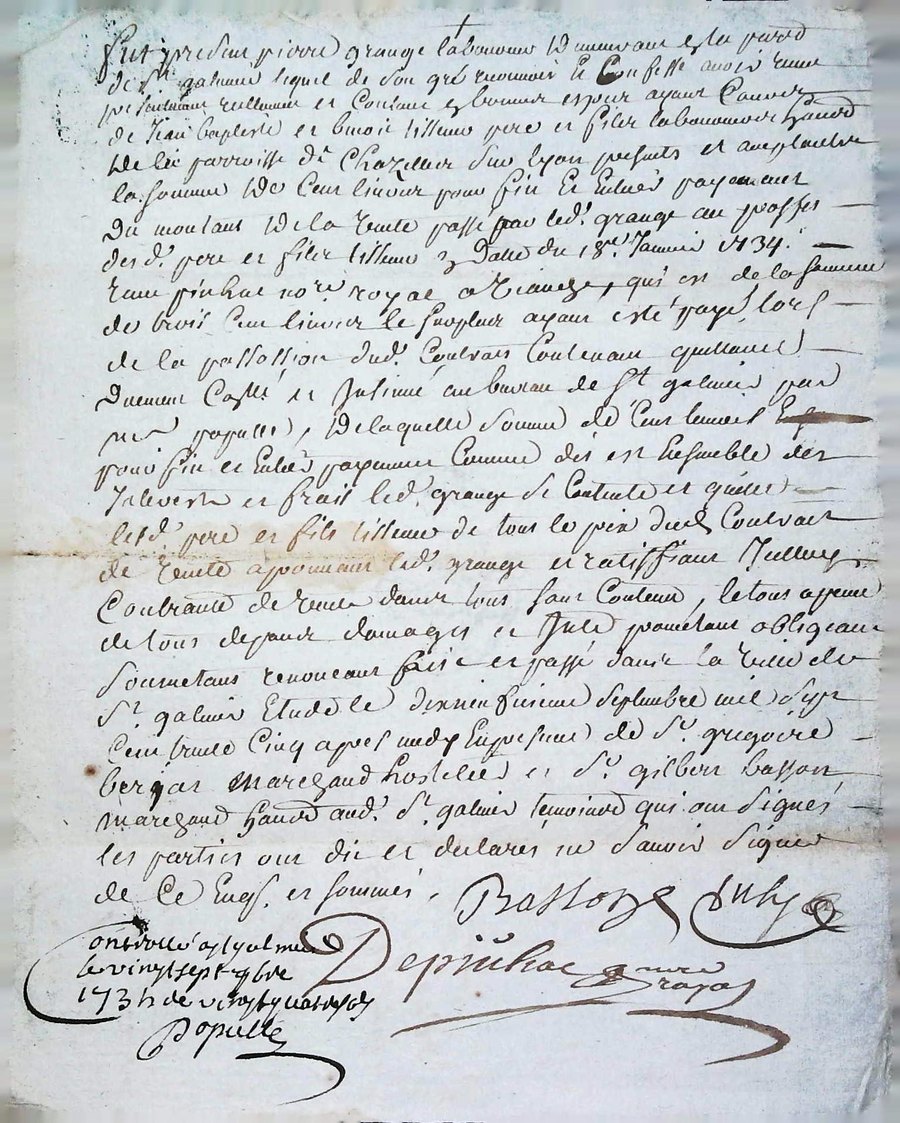 Fut present pierre grange laboureur demeurant en la parr
de St galmier lequel de son gré reconnoit et Confesse avoir receu
presentement reellement et Contant en bonnes especes ayant Cours
de Jean baptiste et benoit tisseur pere et fils laboureurs
de la parroisse de Chazelles sur lyon presents et acceptants
la somme de Cent livres pour fin et Entier payement
du montant de la vente passé par led. grange au proffit
desd. pere et fils tisseur en Datte du 18e. Janvier 1734.
receu nore. royal a , qui est de la somme
de trois Cent livres le surplus ayant esté payé lors
de la passassion dud. Contrat Contenant quittance
Duement Collé et Insinué au bureau de St galmier par
mr populle, de laquelle somme de Cent livres
pour fin et Entier payement Comme dit est Ensemble des
Interests et frais led. grange se Contente et quitte
lesd. pere et fils tisseur de tous le prix dud Contrat
de vente aprouvant led. grange et ratiffiant
Contrant de vente dans tous son Contenu, le tous a peine
de tous depans domages et Inte prometant obligeant
soumetant renonceant fait et passé dans la ville de
St. galmier Etude le septembre mil sept
Cent trente Cinq apres midy En presence de Sr. grégoire
marchand hostelier et Sr. gilbert basson
marchand aud. St. galmier temoins qui ont signés
les parties ont dit et declarés ne savoir signer
de Ce Enqs. et sommés.
Basson
Depiuhac nore
royal
ontrollé a st galmier
le vingt sept 9bre
1735 de vingt quatre sols
Populle